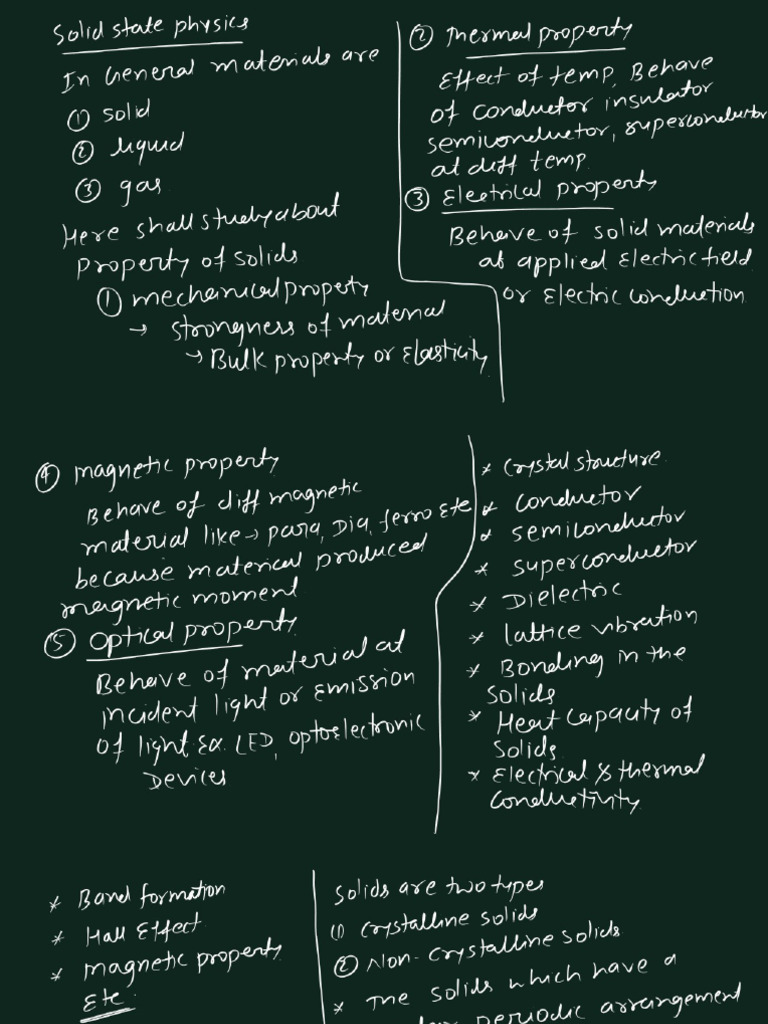 Solid state physics
In General materials are
① solid
② liquid
③ gas
Here shall study about
property of solids
① mechanical property
→ strongness of material
→ Bulk property or Elasticity
② Thermal property
Effect of temp, Behave
of conductor insulator
semiconductor, superconductor
at diff temp
③ Electrical property
Behave of solid materials
as applied Electric field
or Electric conduction
④ magnetic property
Behave of diff magnetic
material like → para, Dia, ferro Etc
because material produced
magnetic moment
⑤ Optical property
Behave of material at
incident light or Emission
of light Ex. LED, optoelectronic
Devices
* Crystal structure
* conductor
* semiconductor
* superconductor
* Dielectric
* lattice vibration
* Bonding in the
solids
* Heat capacity of
solids
* Electrical & thermal
conductivity
* Band formation
* Hall Effect
* magnetic property
Etc
Solids are two types
(1) Crystalline solids
② Non-Crystalline solids
* The solids which have a
periodic arrangement